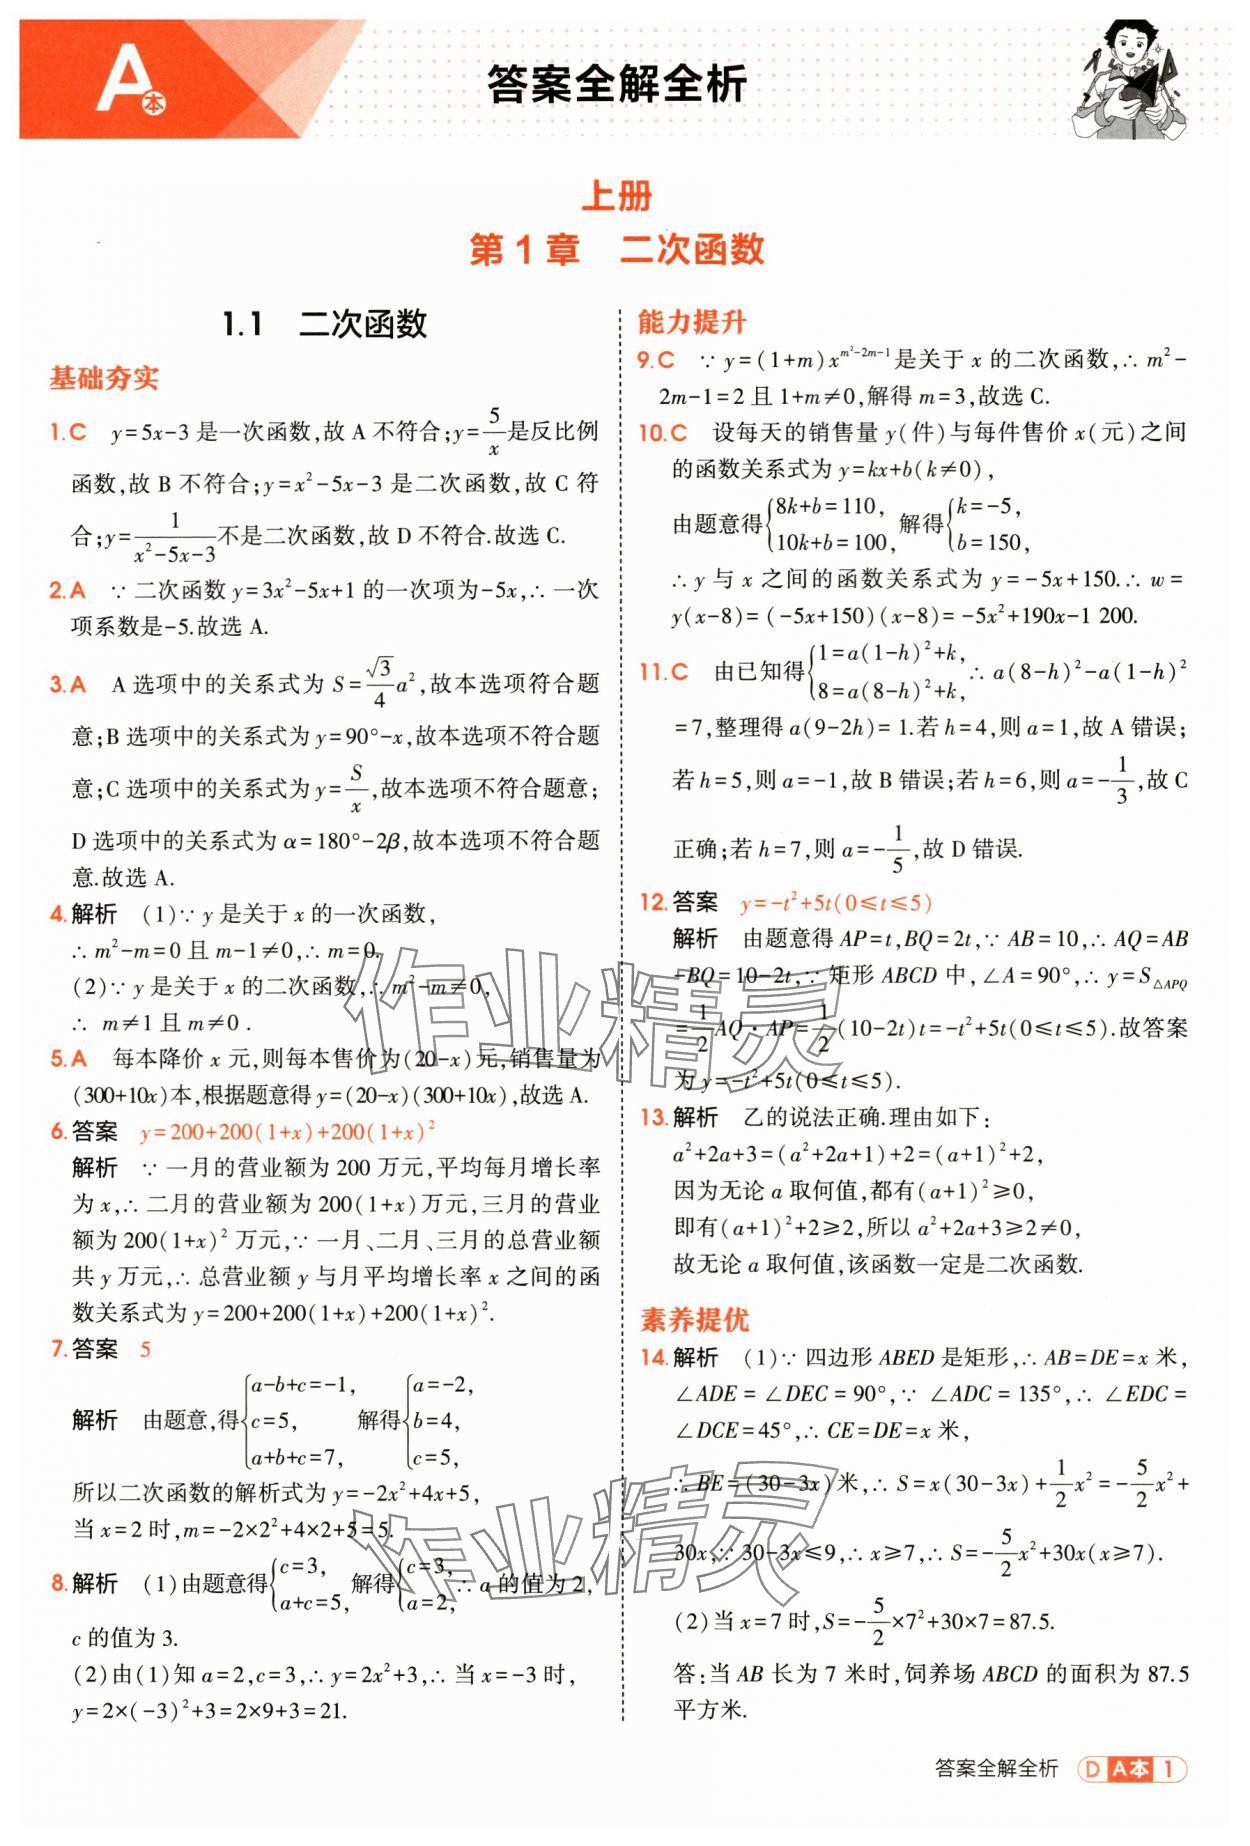 A本
答案全解全析
上册
第1章 二次函数
1.1 二次函数
基础夯实
1.C y=5x-3是一次函数,故A不符合;y=5/x是反比例
函数,故B不符合;y=x²-5x-3是二次函数,故C符
合;y=1/(x²-5x-3)不是二次函数,故D不符合.故选C.
2.A ∵二次函数y=3x²-5x+1的一次项为-5x,∴一次
项系数是-5.故选A.
3.A A选项中的关系式为S=(√3/4)a²,故本选项符合题
意;B选项中的关系式为y=90°-x,故本选项不符合题
意;C选项中的关系式为y=S/x,故本选项不符合题意;
D选项中的关系式为α=180°-2β,故本选项不符合题
意.故选A.
4.解析 (1)∵y是关于x的一次函数,
∴m²-m=0且m-1≠0,∴m=0.
(2)∵y是关于x的二次函数,∴m²-m≠0,
∴ m≠1且m≠0.
5.A 每本降价x元,则每本售价为(20-x)元,销售量为
(300+10x)本,根据题意得y=(20-x)(300+10x),故选A.
6.答案 y=200+200(1+x)+200(1+x)²
解析 ∵一月的营业额为200万元,平均每月增长率
为x,∴二月的营业额为200(1+x)万元,三月的营业
额为200(1+x)²万元,∵一月、二月、三月的总营业额
共y万元,∴总营业额y与月平均增长率x之间的函
数关系式为y=200+200(1+x)+200(1+x)².
7.答案 5
解析 由题意,得{a-b+c=-1, c=5, a+b+c=7, 解得{a=-2, b=4, c=5,
所以二次函数的解析式为y=-2x²+4x+5,
当x=2时,m=-2×2²+4×2+5=5.
8.解析 (1)由题意得{c=3, a+c=5, 解得{c=3, a=2, ∴a的值为2,
c的值为3.
(2)由(1)知a=2,c=3,∴y=2x²+3,∴当x=-3时,
y=2×(-3)²+3=2×9+3=21.
能力提升
9.C ∵y=(1+m)x^(m²-2m-1)是关于x的二次函数,∴m²-
2m-1=2且1+m≠0,解得m=3,故选C.
10.C 设每天的销售量y(件)与每件售价x(元)之间
的函数关系式为y=kx+b(k≠0),
由题意得{8k+b=110, 10k+b=100, 解得{k=-5, b=150,
∴y与x之间的函数关系式为y=-5x+150.∴w=
y(x-8)=(-5x+150)(x-8)=-5x²+190x-1 200.
11.C 由已知得{1=a(1-h)²+k, 8=a(8-h)²+k, ∴a(8-h)²-a(1-h)²
=7,整理得a(9-2h)=1.若h=4,则a=1,故A错误;
若h=5,则a=-1,故B错误;若h=6,则a=-1/3,故C
正确;若h=7,则a=-1/5,故D错误.
12.答案 y=-t²+5t(0≤t≤5)
解析 由题意得AP=t,BQ=2t,∵AB=10,∴AQ=AB
-BQ=10-2t,∵矩形ABCD中,∠A=90°,∴y=S△APQ
=1/2 AQ·AP=1/2(10-2t)t=-t²+5t(0≤t≤5).故答案
为y=-t²+5t(0≤t≤5).
13.解析 乙的说法正确.理由如下:
a²+2a+3=(a²+2a+1)+2=(a+1)²+2,
因为无论a取何值,都有(a+1)²≥0,
即有(a+1)²+2≥2,所以a²+2a+3≥2≠0,
故无论a取何值,该函数一定是二次函数.
素养提优
14.解析 (1)∵四边形ABED是矩形,∴AB=DE=x米,
∠ADE=∠DEC=90°,∵∠ADC=135°,∴∠EDC=
∠DCE=45°,∴CE=DE=x米,
∴BE=(30-3x)米,∴S=x(30-3x)+1/2x²=-5/2x²+
30x,∵30-3x≤9,∴x≥7,∴S=-5/2x²+30x(x≥7).
(2)当x=7时,S=-5/2×7²+30×7=87.5.
答:当AB长为7米时,饲养场ABCD的面积为87.5
平方米.
作业精灵
作业精灵
答案全解全析 D A本 1